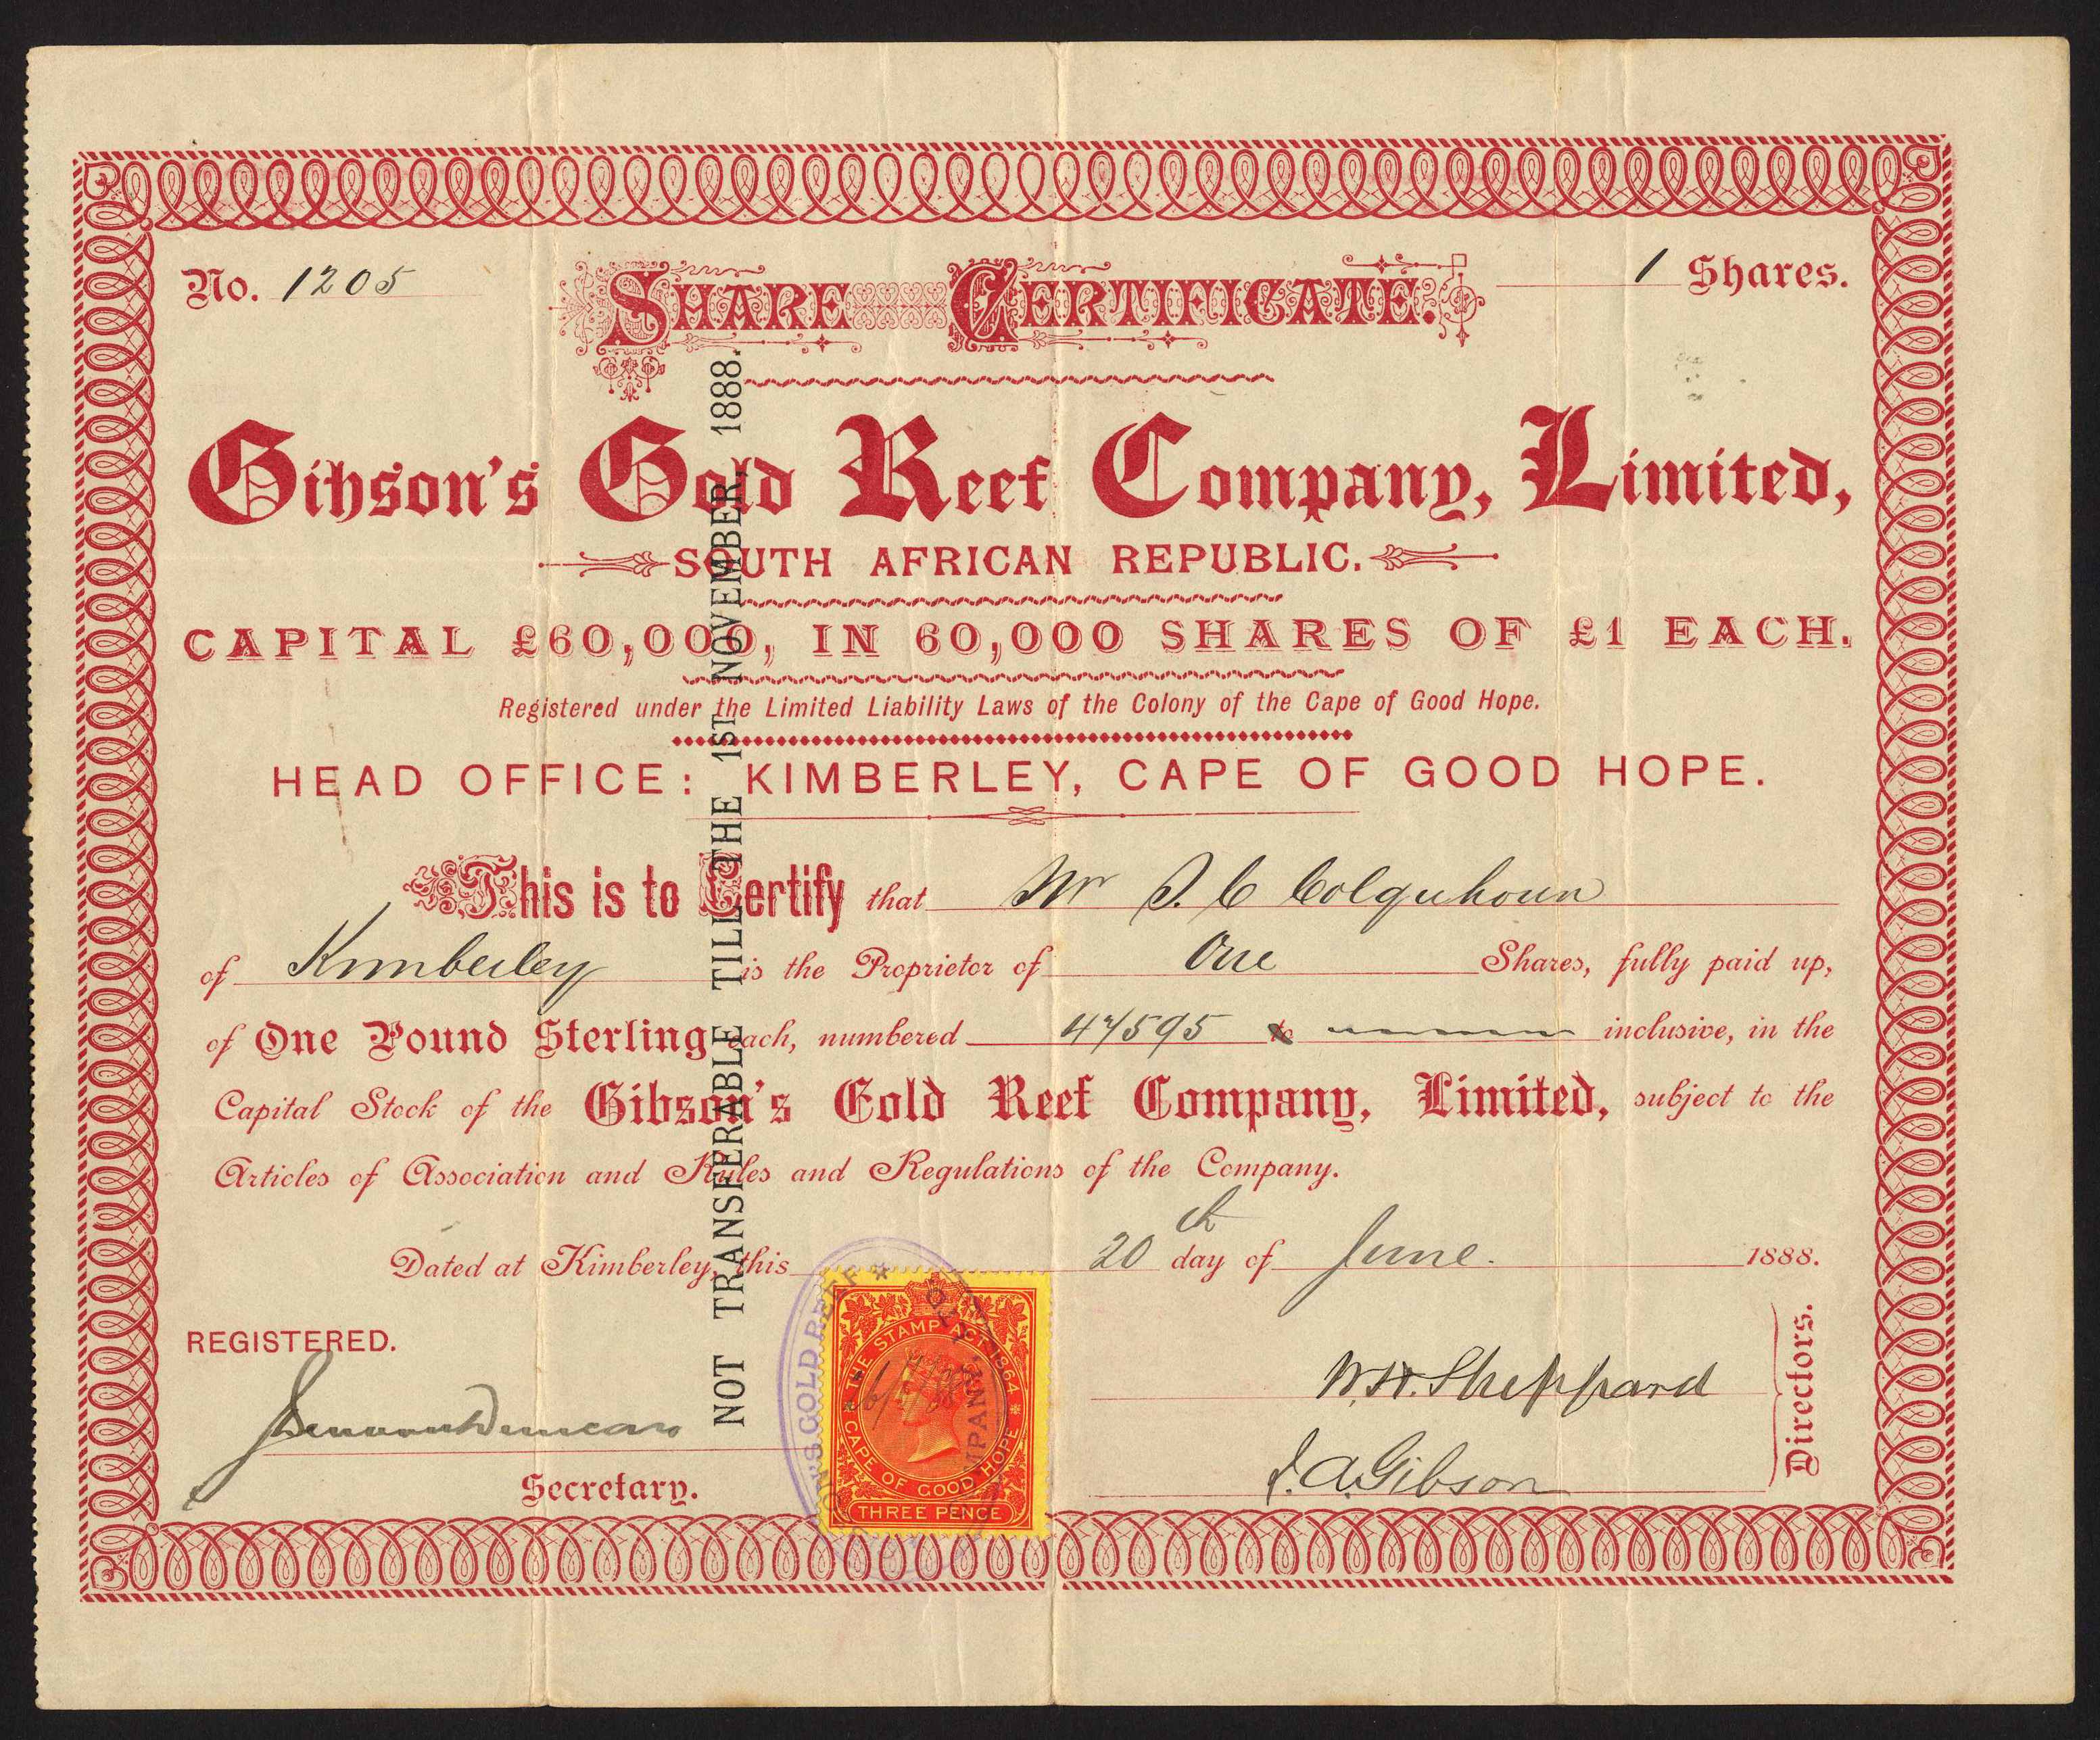 No. 1205
1 Shares.
SHARE CERTIFICATE.
Gibson's Gold Reef Company, Limited,
SOUTH AFRICAN REPUBLIC.
CAPITAL £60,000, IN 60,000 SHARES OF £1 EACH.
Registered under the Limited Liability Laws of the Colony of the Cape of Good Hope.
HEAD OFFICE: KIMBERLEY, CAPE OF GOOD HOPE.
This is to Certify that Mr J. C Colquhoun
of Kimberley is the Proprietor of One Shares, fully paid up,
of One Pound Sterling each, numbered 47595 to inclusive, in the
Capital Stock of the Gibson's Gold Reef Company, Limited, subject to the
Articles of Association and Rules and Regulations of the Company.
Dated at Kimberley, this 20th day of June. 1888.
NOT TRANSFERABLE TILL THE 1ST NOVEMBER, 1888.
REGISTERED.
Duncan
Secretary.
GOLD REEF
THE STAMP ACT 1864
CAPE OF GOOD HOPE
THREE PENCE
W.H. Sheppard
J. A. Gibson
Directors.